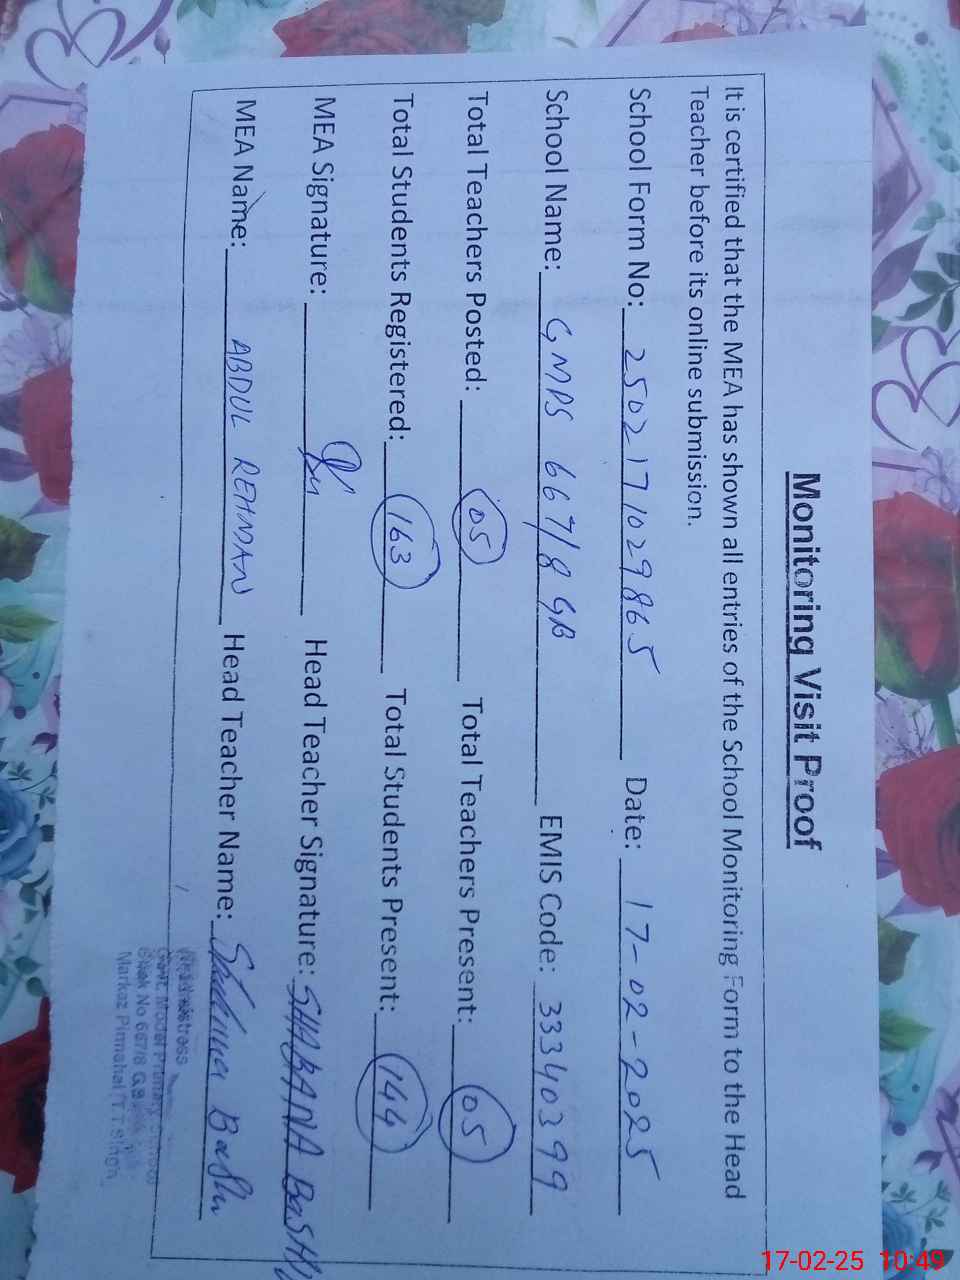 Monitoring Visit Proof
It is certified that the MEA has shown all entries of the School Monitoring Form to the Head
Teacher before its online submission.
School Form No: 2502171029865 Date: 17-02-2025
School Name: GMPS 667/8 GB EMIS Code: 33340399
Total Teachers Posted: 05 Total Teachers Present: 05
Total Students Registered: 163 Total Students Present: 144
MEA Signature: Head Teacher Signature: SHABANA BaSHi
MEA Name: ABDUL REHMAN Head Teacher Name:
Headmistress
Govt. Model Primary School
Chak No 667/8 G.B
Markaz Pirmahal (T.T.Singh)
17-02-25 10:49